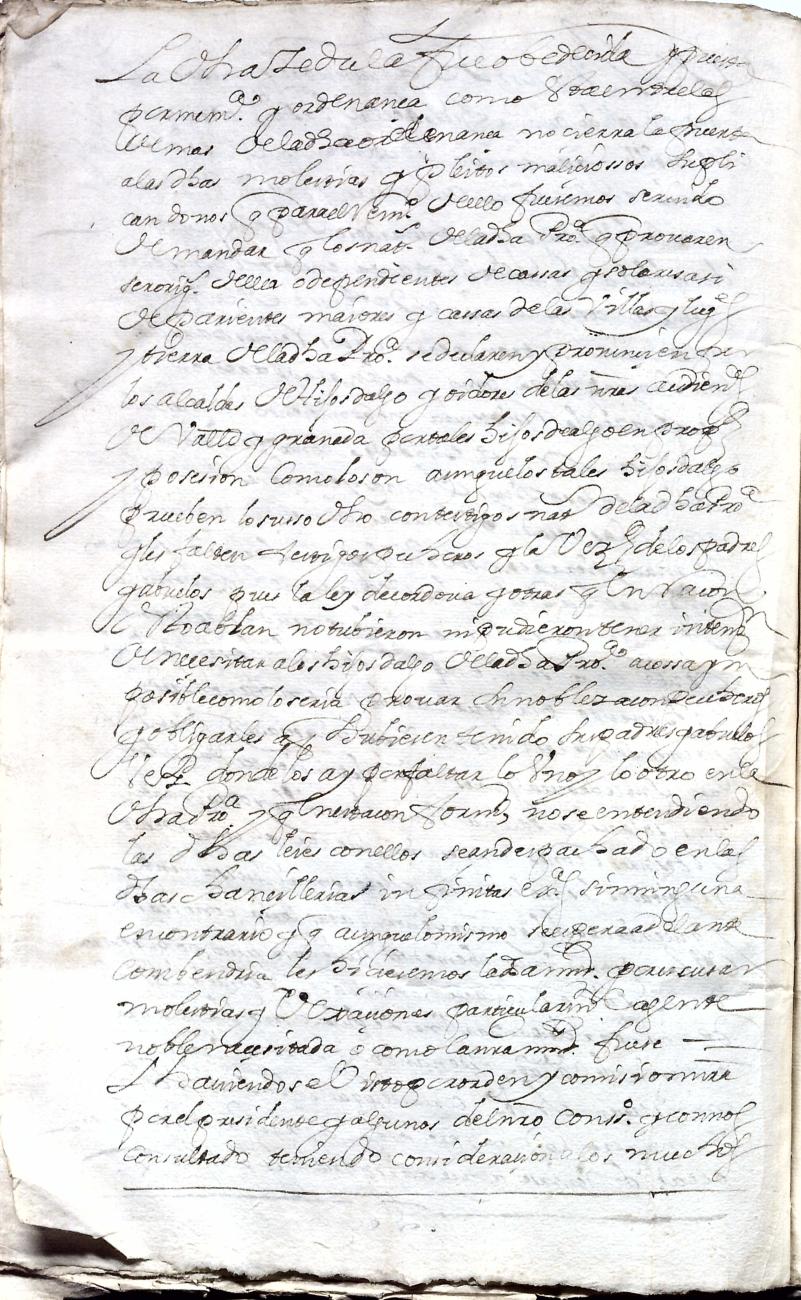 La dha zedula fue obedecida y puesta
por mem.ª y ordenança como esta entre las
demas de la dha ordenança no cierra la puerta
a las dhas molestias y pleitos maliciossos supli
candonos q para el rem.º dello fuesemos seruido
de mandar q los nat.s de la dha Pro.ª q prouaren
ser orig.s della o dependientes de cassas y solares asi
de parientes maiores q cassas de las Villas y lug.s
y tierra de la dha Pro.ª se declaren y pronuncien por
los alcaldes de Hijosdalgo y oidores de las nras audien.s
de Valld y granada por tales hijos dealgo en prop.d
y posesion como lo son aunque los tales hijosdalgo
prueben lo suso dho con testigos nat.s de la dha Pro.ª
y les falten testigos pecheros y la Vez.d de los padres
y abuelos pues la ley de cordoua y otras q en raçon
desto ablan no tubieron ni pudieron tener intento
de necesitar a los hijosdalgo de la dha Pro.ª a cossa ym
posible como lo seria prouar su nobleza con pecheros
y obligarles a q hubiesen tenido sus padres y abuelos
Vez.d donde los ay por faltar lo Vno y lo otro en la
dha Pro.ª y q en esta conform.d no se entendiendo
las dhas leies con ellos se an despachado en las
dhas chancillerias infinitas ex.s sin ninguna
en contrario y q aunque lo mismo se espera adelante
combendria les hiciesemos la dha mrd. por escusar
molestias y Vexaciones particularm.te a gente
noble necesitada o como la nra mrd. fuese
Y hauiendose Visto por orden y comision nra
por el presidente y algunos del nro Cons.º y con nos
consultado teniendo consideracion a los muchos